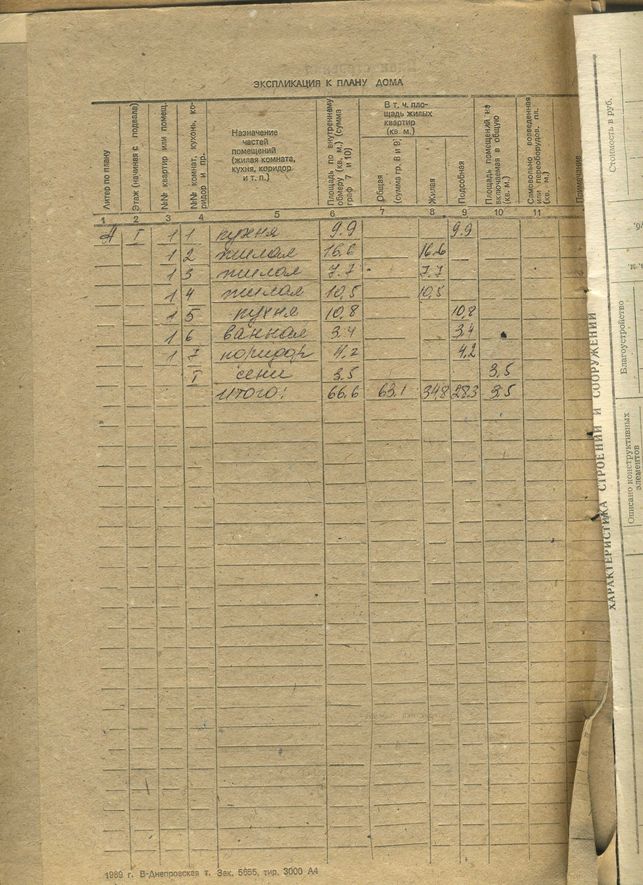 ЭКСПЛИКАЦИЯ К ПЛАНУ ДОМА
Литер по плану
Этаж (начиная с подвала)
№№ квартир или помещ.
№№ комнат, кухонь, ко-
ридор и пр.
Назначение
частей
помещений
(жилая комната,
кухня, коридор
и т. п.)
Площадь по внутреннему
обмеру (кв. м.) (сумма
граф 7 и 10)
В т. ч. пло-
щадь жилых
квартир
(кв. м.)
Общая
(сумма гр. 8 и 9)
Жилая
Подсобная
Площадь помещений не
включаемая в общую
(кв. м.)
Самовольно возведенная
или переоборудов. пл.
(кв. м.)
Примечание
1 2 3 4 5 6 7 8 9 10 11
А I 1 1 кухня 9.9 9.9
1 2 жилая 16.6 16.6
1 3 жилая 7.7 7.7
1 4 жилая 10,5 10,5
1 5 кухня 10,8 10,8
1 6 ванная 3,4 3,4
1 7 коридор 4,2 4,2
I сени 3,5 3,5
Итого: 66,6 63,1 34,8 28,3 3,5
1989 г. В-Днепровская т. Зак. 5655, тир. 3000 А4
ХАРАКТЕРИСТИКА СТРОЕНИЙ И СООРУЖЕНИЙ
Стоимость в руб.
Благоустройство
Описано конструктивных
элементов